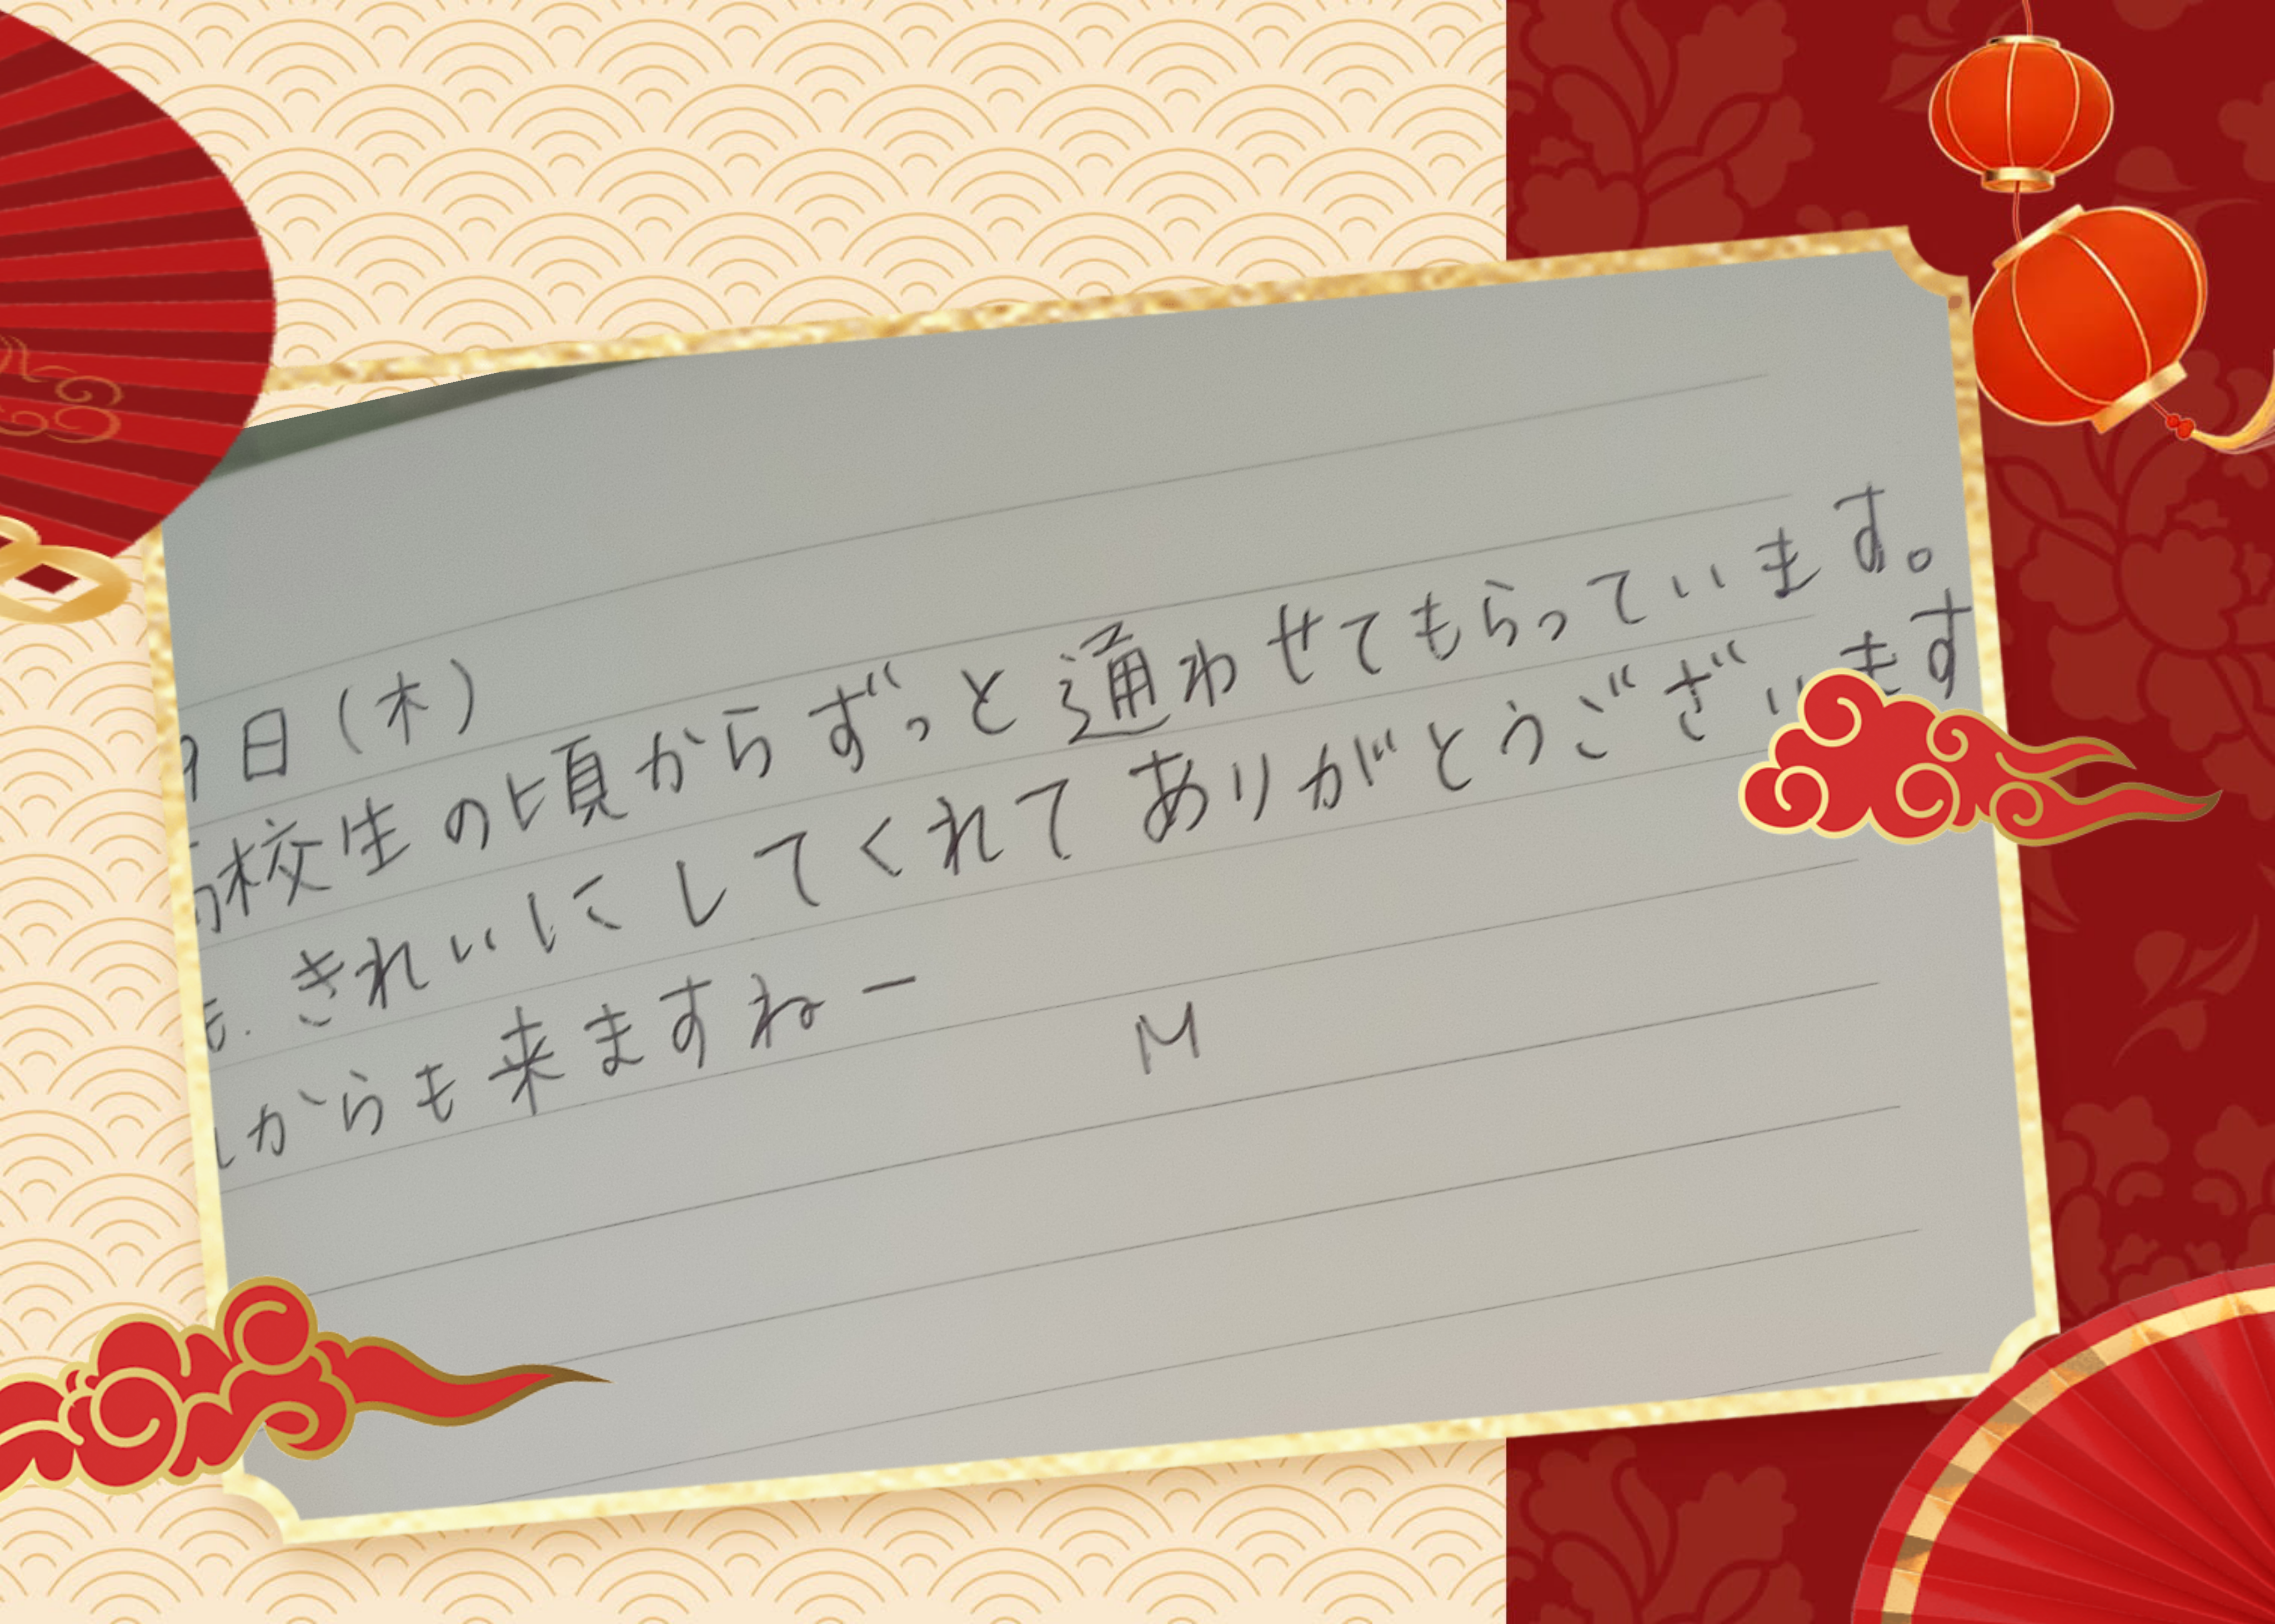 9日(木)
高校生の頃からずっと通わせてもらっています。
も.きれいにしてくれてありがとうございます
からも来ますねー
M